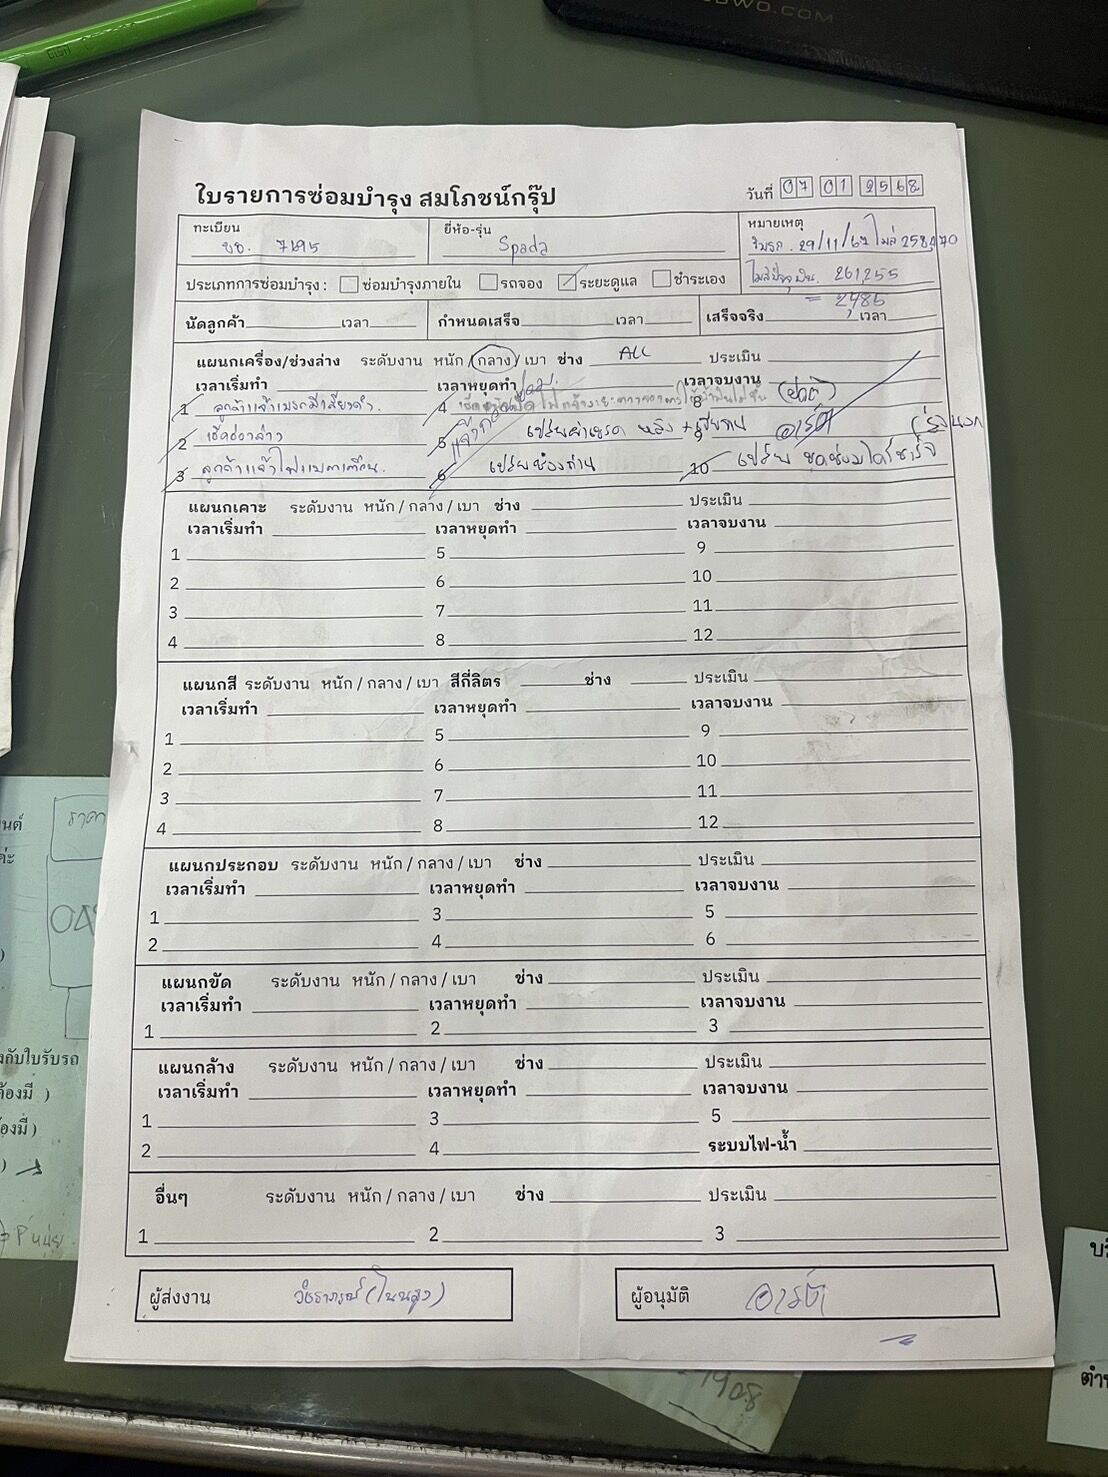 OWO.COM
ใบรายการซ่อมบำรุง สมโภชน์กรุ๊ป
วันที่ 07 01 2568
ทะเบียน
ขอ. 7695
ยี่ห้อ-รุ่น
Spada
หมายเหตุ
รับรถ. 29/11/67 ไมล์ 258,770
ไมล์ปัจจุบัน. 261,255
= 2,485
ประเภทการซ่อมบำรุง : ซ่อมบำรุงภายใน รถจอง ระยะดูแล ชำระเอง
นัดลูกค้า เวลา กำหนดเสร็จ เวลา เสร็จจริง เวลา
แผนกเครื่อง/ช่วงล่าง ระดับงาน หนัก / กลาง / เบา ช่าง ALL ประเมิน
เวลาเริ่มทำ เวลาหยุดทำ เวลาจบงาน
1 ลูกค้าแจ้งเบรคมีเสียงดัง. 4 8 (ปกติ)
2 เช็คช่วงล่าง 5 เปลี่ยนผ้าเบรค หลัง + 9 อาร์ต
3 ลูกค้าแจ้งไฟแบตเตือน. 6 10 เปลี่ยน ชุดซ่อมไดร์ชาร์จ
แผนกเคาะ ระดับงาน หนัก / กลาง / เบา ช่าง ประเมิน
เวลาเริ่มทำ เวลาหยุดทำ เวลาจบงาน
1 5 9
2 6 10
3 7 11
4 8 12
แผนกสี ระดับงาน หนัก / กลาง / เบา สีกี่ลิตร ช่าง ประเมิน
เวลาเริ่มทำ เวลาหยุดทำ เวลาจบงาน
1 5 9
2 6 10
3 7 11
4 8 12
แผนกประกอบ ระดับงาน หนัก / กลาง / เบา ช่าง ประเมิน
เวลาเริ่มทำ เวลาหยุดทำ เวลาจบงาน
1 3 5
2 4 6
แผนกขัด ระดับงาน หนัก / กลาง / เบา ช่าง ประเมิน
เวลาเริ่มทำ เวลาหยุดทำ เวลาจบงาน
1 2 3
แผนกล้าง ระดับงาน หนัก / กลาง / เบา ช่าง ประเมิน
เวลาเริ่มทำ เวลาหยุดทำ เวลาจบงาน
1 3 5
2 4 ระบบไฟ-น้ำ
อื่นๆ ระดับงาน หนัก / กลาง / เบา ช่าง ประเมิน
1 2 3
ผู้ส่งงาน
ผู้อนุมัติ อาร์ต
ราคา
งกับใบรับรถ
ต้องมี )
้องมี )
1908